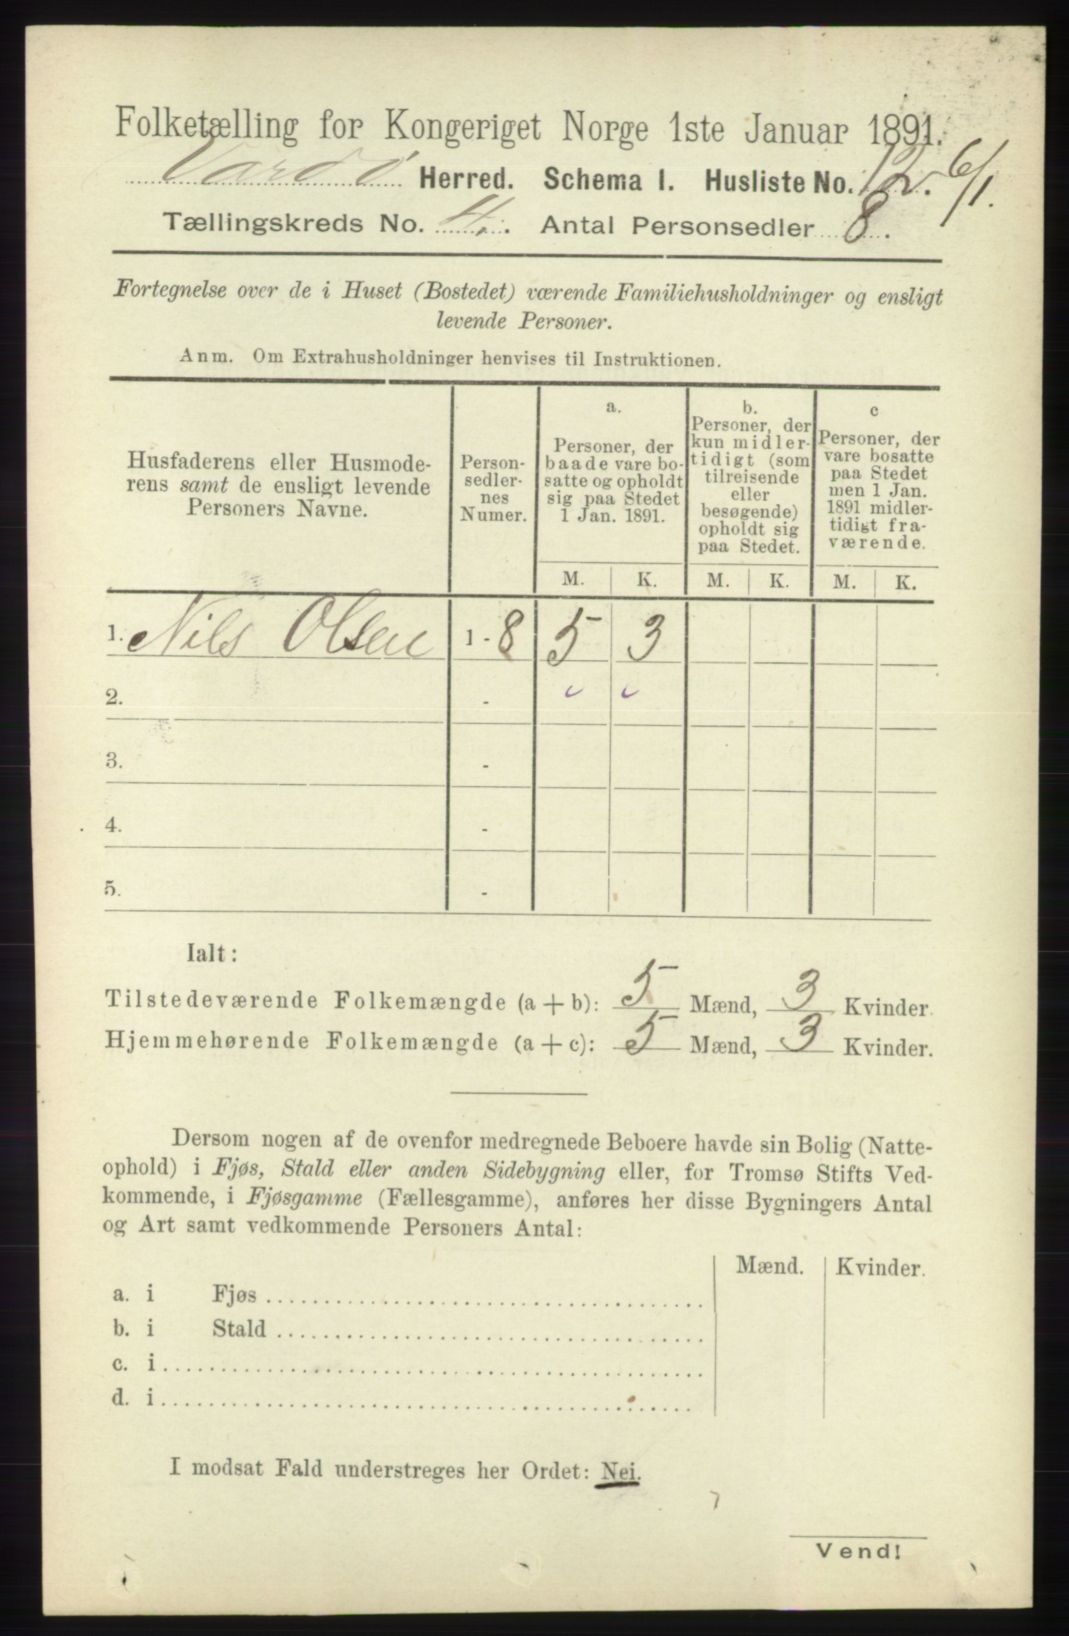 Folketælling for Kongeriget Norge 1ste Januar 1891.
Vardø Herred. Schema I. Husliste No. 12. 6/1.
Tællingskreds No. 4. Antal Personsedler 8.
Fortegnelse over de i Huset (Bostedet) værende Familiehusholdninger og ensligt
levende Personer.
Anm. Om Extrahusholdninger henvises til Instruktionen.
Husfaderens eller Husmode-
rens samt de ensligt levende
Personers Navne.
Person-
sedler-
nes
Numer.
a.
Personer, der
baade vare bo-
satte og opholdt
sig paa Stedet
1 Jan. 1891.
b.
Personer, der
kun midler-
tidigt (som
tilreisende
eller
besøgende)
opholdt sig
paa Stedet.
c
Personer, der
vare bosatte
paa Stedet
men 1 Jan.
1891 midler-
tidigt fra-
værende.
M. K. M. K. M. K.
1. Nils Olsen 1 - 8 5 3
2. -
3. -
4. -
5. -
Ialt:
Tilstedeværende Folkemængde (a + b): 5 Mænd, 3 Kvinder.
Hjemmehørende Folkemængde (a + c): 5 Mænd, 3 Kvinder.
Dersom nogen af de ovenfor medregnede Beboere havde sin Bolig (Natte-
ophold) i Fjøs, Stald eller anden Sidebygning eller, for Tromsø Stifts Ved-
kommende, i Fjøsgamme (Fællesgamme), anføres her disse Bygningers Antal
og Art samt vedkommende Personers Antal:
Mænd. Kvinder.
a. i Fjøs
b. i Stald
c. i
d. i
I modsat Fald understreges her Ordet: Nei.
Vend!